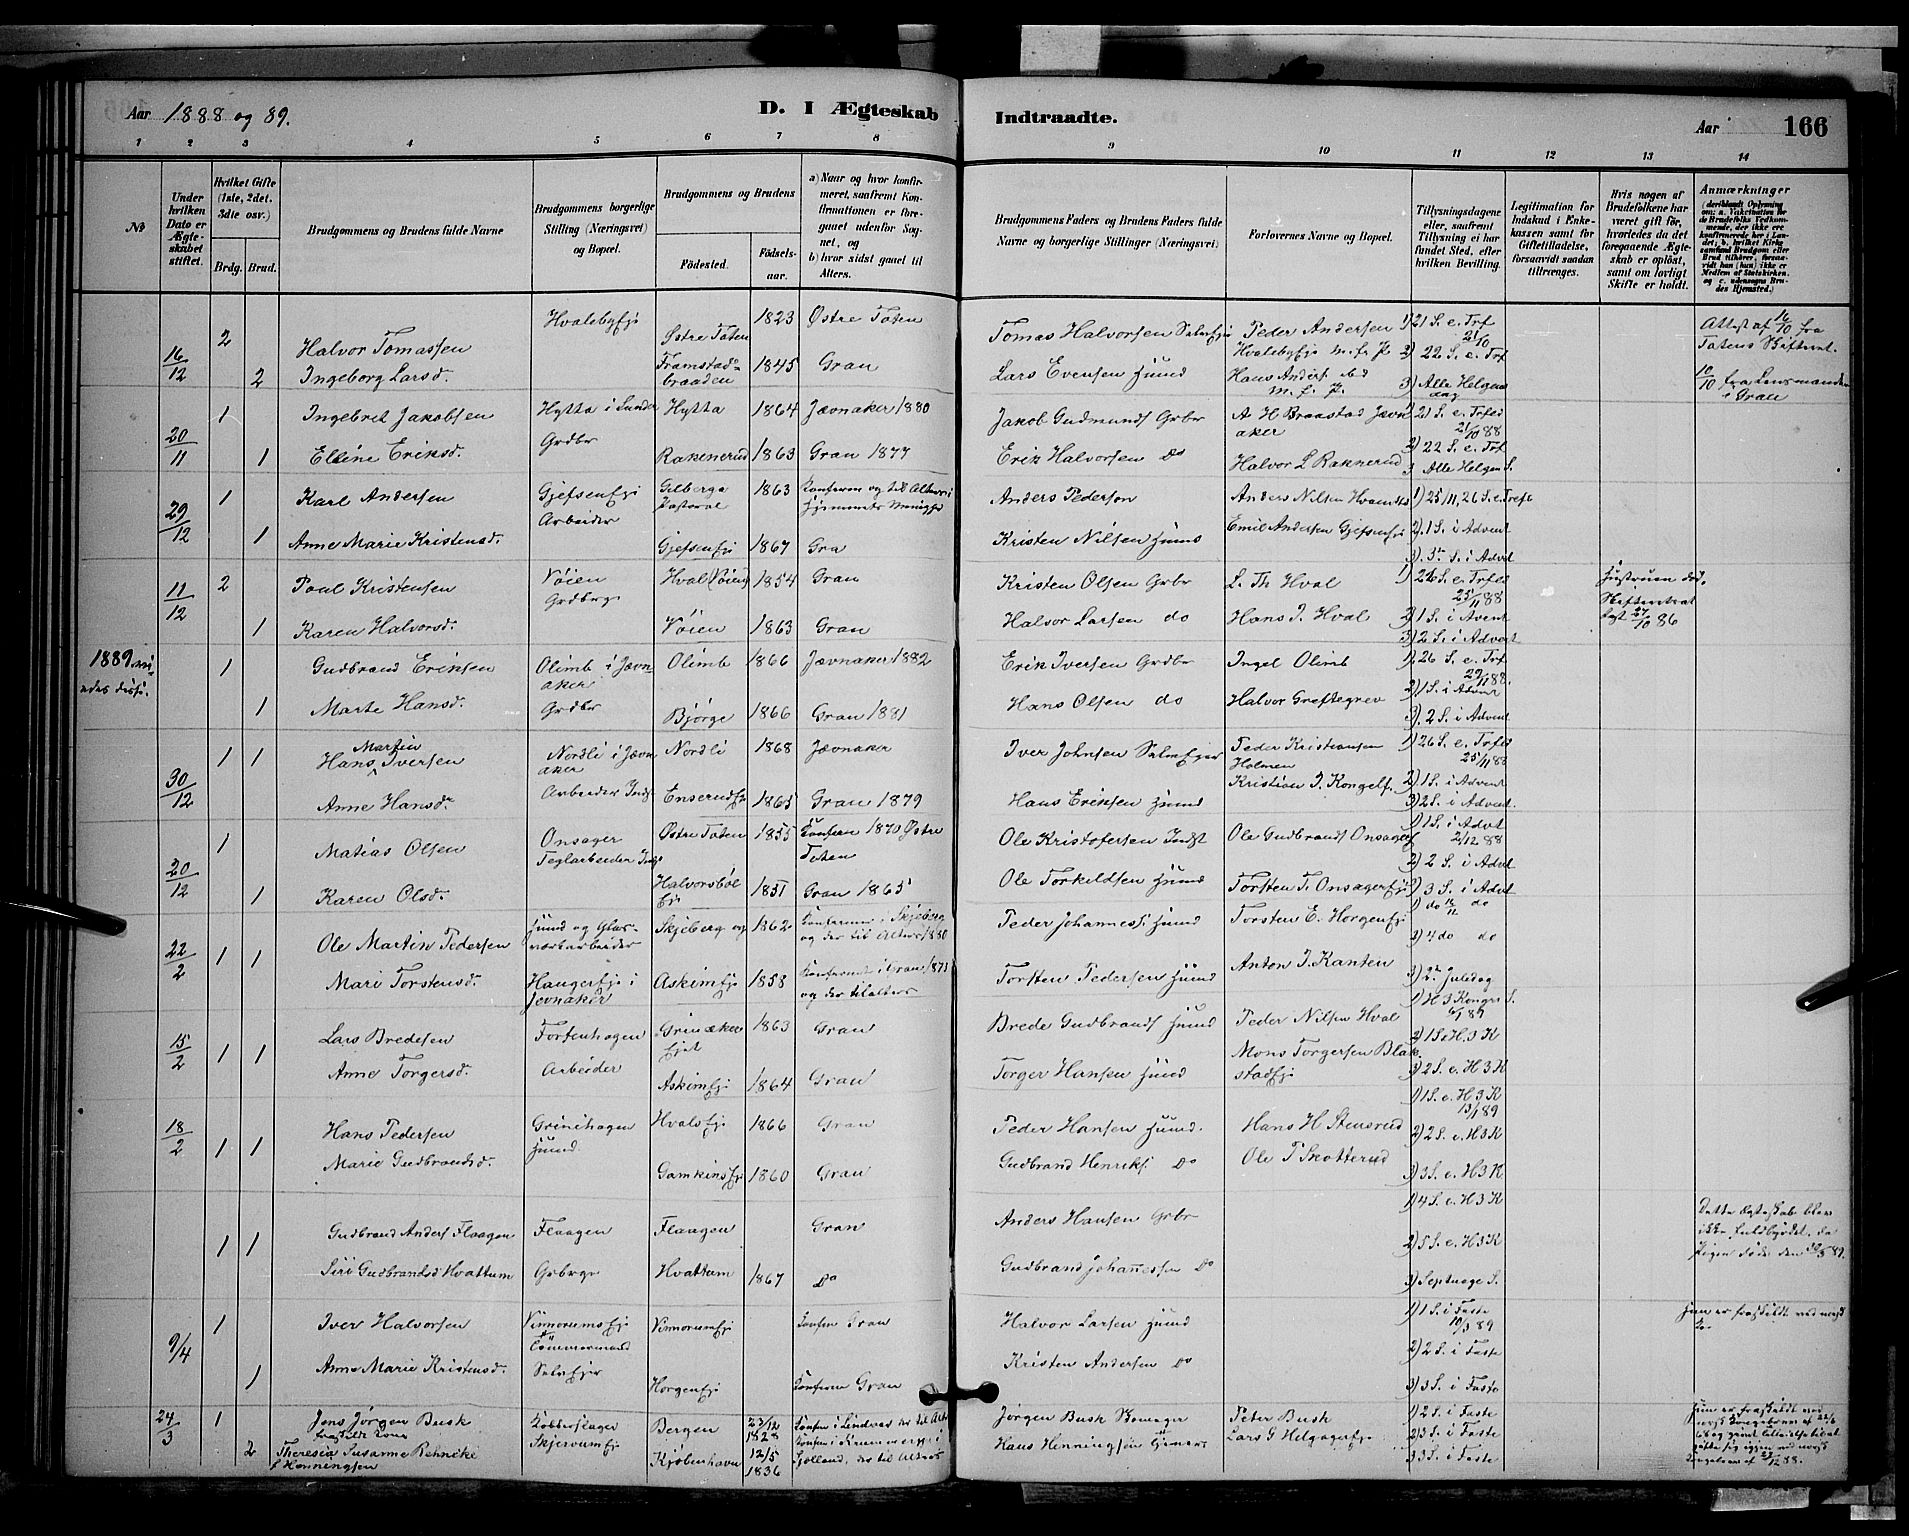 Aar 1888 og 89.
D. I Ægteskab
Indtraadte.
Aar
166
1 2 3 4 5 6 7 8
9 10 11 12 13 14
No
Under hvilken Dato er Ægteskabet stiftet.
Hvilket Gifte (1ste, 2det, 3die osv.)
Brdg. Brud.
Brudgommens og Brudens fulde Navne
Brudgommens borgerlige Stilling (Næringsvei) og Bopæl.
Brudgommens og Brudens
Fødested.
Fødselsaar.
a) Naar og hvor konfirmeret, saafremt Konfirmationen er foregaaet udenfor Sognet, og
b) hvor sidst gaaet til Alters.
Brudgommens Faders og Brudens Faders fulde Navne og borgerlige Stillinger (Næringsvei)
Forlovernes Navne og Bopæl.
Tillysningsdagene eller, saafremt Tillysning ei har fundet Sted, efter hvilken Bevilling.
Legitimation for Indskud i Enkekassen samt for Giftetilladelse, forsaavidt saadan tiltrænges.
Hvis nogen af Brudefolkene har været gift før, hvorledes da det foregaaende Ægteskab er opløst, samt om lovligt Skifte er holdt.
Anmærkninger
(deriblandt Oplysning om: a. Vakcination for de Brudefolks Vedkommende, der ikke ere konfirmerede her i Landet; b. hvilket Kirkesamfund Brudgom eller Brud tilhører, forsaavidt han (hun) ikke er Medlem af Statskirken, og c. udensogns Brudes Hjemsted.)
16/12 2 Halvor Tomassen Hvalebyeje Østre Toten 1823 Østre Toten Tomas Halvorsen Selveier Peder Andersen Hvalebyeje 1) 21 S. e. Trf 21/10 Attest af 16/10 fra Totens Skifteret.
2 Ingeborg Larsd. Framstadbraaden 1845 Gran Lars Evensen Husmd 2) 22 S. e. Trf 3) Alle Helgensdag 10/10 fra Lensmanden i Gran
20/11 1 Ingebret Jakobsen Hytta i Lunder Grdbr Hytta 1864 Jævnaker 1880 Jakob Gudmunds Grbr A H Braastad Jævnaker 21 S. e. Trfd 21/10 88
1 Elline Eriksd. Rakenerud 1863 Gran 1877 Erik Halvorsen Do Halvor L Raknerud 2) 22 S. e. Trf 3 Alle Helgen S.
29/12 1 Karl Andersen Gjefseneje Arbeider Gilberga Pastorat 1863 Konferm og til Alters i Hjemmets Menighed Anders Pederson Anders Nilsen 1) 25/11, 26 S. e. Trefo
1 Anne Marie Kristensd. Gjefsenej 1867 Gra Kristen Nilsen Husmd Emil Andersen Gjefsenej 2) 1 S. i Advent 3) 3n S. i Advt
11/12 2 Poul Kristensen Vøien Grdbrg Hval (Vøien) 1854 Gran Kristen Olsen Grbr L. Th Hval 1) 26 S. e. Trfd 25/11 88 Hustruen død. Skifteattest
1 Karen Halvorsd. Vøien 1863 Gran Halvor Larsen do Hans J. Hval 2) 1 S. i Avent 3) 2 S. i Advent
1889.
1 Gudbrand Eriksen Olimb i Jævnaker Grdbr Olimb 1866 Jævnaker 1882 Erik Iversen Grdbr Ingel Olimb 1) 26 S. e. Trf
1 Marte Hansd. Bjørge 1866 Gran 1881 Hans Olsen do Halvor Greftegrev 2) 1 S. i Advent 3). 2 S. i Advent
30/12 1 1 Hans Martin Iversen Nordli i Jævnaker Arbeider Inds Nordli 1868 Jævnaker Iver Johnsen Selveier Peder Kristiansen Holmen 1) 26 S. e. Trfd 25/11 88
Anne Hansdr Enserudej 1865 Gran 1879 Hans Eriksen Husmd Kristian J. Kongelf. 2) 1 S. i Advent 3) 2 S. i Advent.
20/12 1 Matias Olsen Onsager Teglarbeider Inds Østre Toten 1855 Konferm 1870 Østre Toten Ole Kristofersen Indst Ole Gudbrands Onsagerej 1) 1 S. i Advt 2/12 88
1 Karen Olsd. Halvorsbøl Eje 1851 Gran 1865 Ole Torkildsen Husmd Torsten T. Onsagerej 2) 2 S. i Advt 3) 3 S. i Advt
22/2 1 1 Ole Martin Pedersen Husmd og Glasværkarbeider Skjeberg 1862 Konfermn i Skjeberg og der til Alters 1880 Peder Johanness Husmd Torsten E. Horgenej 1) do do 2) 4 do do
Mari Torstensd. Haugerej i Jevnaker Askimej 1858 Konfermet i Gran 1873 og der til alters Torsten Pedersen Husmd Anton J. Kanten 3) 2n Juledag
15/2 1 1 Lars Bredesen Tortenhagen Arbeider Grinaker Ejet 1863 Gran Brede Gudbrands Husmd Peder Nilsen Hval 1) H 3 Kongrs S. 6/1 89
Anne Torgersd. Askimej 1864 Gran Torger Hansen Husmd Mons Torgersen Blakstadej 2) 1 S. e H. 3 K 3) 2 S. e. H 3 K
18/2 1 1 Hans Pedersen Grinihagen Husmd. Hvalsej. 1866 Gran Peder Hansen Husmd. Hans H Stensrud 1) 1 S. e. H 3 K 13/1 89
Marie Gudbrandsd. Gamkinsej 1860 Gran Gudbrand Henriks. Do Ole P Skotterud 2) 2 S. e. H 3 K 3) 3 S. e. H 3 K
1 1 Gudbrand Anders Flaagen Flaagen Flaagen Gran Anders Hansen Grbr 1) 4 S. e. H 3 K Dette Ægteskab blev ikke fuldbyrdet, da Pigen døde den 30/3 89.
Siri Gudbrandsd Hvattum Gbrbrge Hvattum 1867 Do Gudbrand Johannessen Do 2) 5 S. e. H 3 K 3) Septuage S.
9/4 1 Iver Halvorsen Vinnorumsej Tømmermand Vinnorumej Konferm Gran Halvor Larsen Husmd 1) 1 S. i Faste 10/3 89
1 Anne Marie Kristensd. Selveier Horgenej Konferm Gran Kristen Andersen Do 2) 2 S. i Faste 3) 3 S. i Faste
24/3 1 Jens Jørgen Busk Kobberslager Skjervumej Bergen 23/12 1828 Jørgen Busk Skomager Peter Busk 1) 2 S. i Faste
2 fraskilt Kone Theresia Susanne Behncke f Henningsen Kjøbenhavn 12/5 1836 Sjælland, der til Alters Hans Henningsen Lars G Helgagereje 2) 3 S. i Faste 3 3 S. i Faste